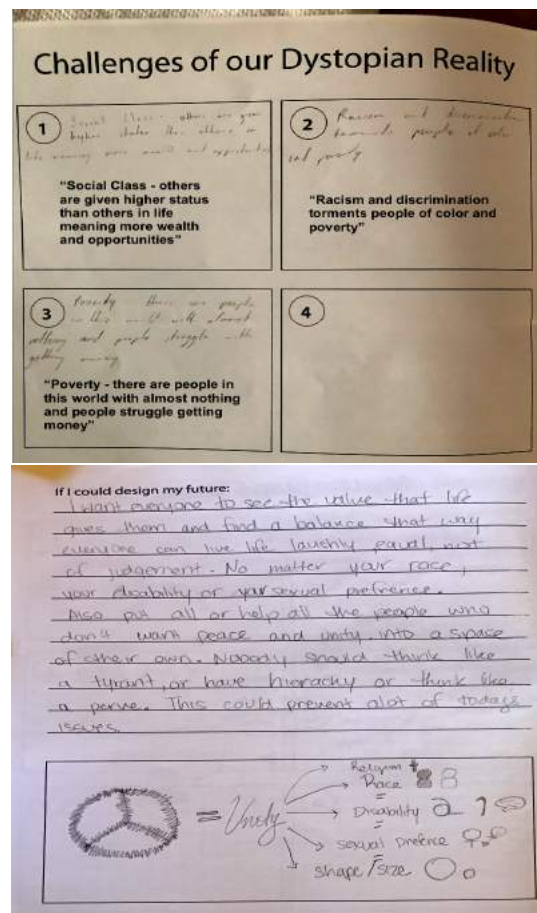 Challenges of our Dystopian Reality
1
Social Class - others are given
higher status than others in
life meaning more wealth and opportunities
"Social Class - others
are given higher status
than others in life
meaning more wealth
and opportunities"
2
Racism and discrimination
towards people of color
and poverty
"Racism and discrimination
torments people of color and
poverty"
3
Poverty - there are people
in this world with almost
nothing and people struggle with
getting money
"Poverty - there are people in
this world with almost nothing
and people struggle getting
money"
4
If I could design my future:
I want everyone to see the value that life
gives them and find a balance that way
everyone can live life equal, not
of judgement. No matter your race,
your disability or your sexual prefrience.
Also put all or help all the people who
don't want peace and unity into a space
of their own. Nobody should think like
a tyrant, or have hierachy or think like
a perve. This could prevent alot of todays
issues.
= Unity
Religion
Race
=
Disability
=
sexual prefence
=
shape/size